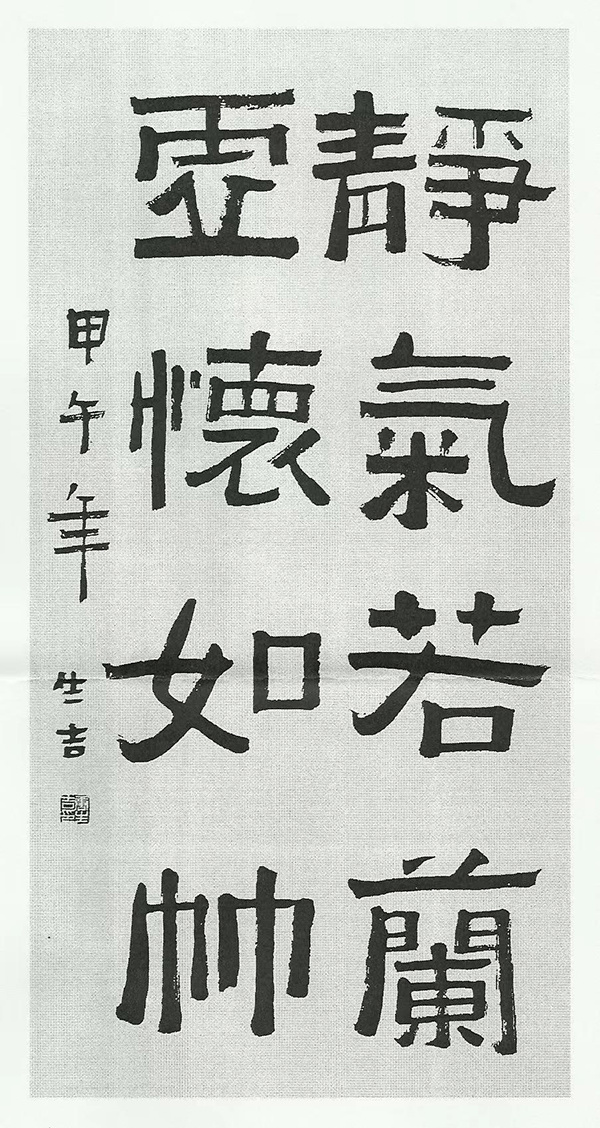 靜氣若蘭
虛懷如竹
甲午年 生吉